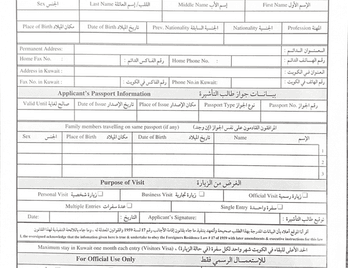 الجنس Sex اللقب / إسم العائلة Last Name إسم الأب Middle Name الإسم الأول First Name
مكان الميلاد Place of Birth تاريخ الميلاد Date of Birth الجنسية السابقة Prev. Nationality الجنسية Nationality المهنة Profession
Permanent Address: العنوان الدائم
Home Fax No. رقم الفاكس الدائم Home Phone No. : رقم الهاتف الدائم
Address in Kuwait : العنوان في الكويت
Fax No. in Kuwait : رقم الفاكس في الكويت Phone No.in Kuwait: رقم الهاتف في الكويت
Applicant's Passport Information بيانات جواز طالب التأشيرة
Valid Until صالح لغاية Date of Issue تاريخ الإصدار Place of Issue مكان الإصدار Passport Type نوع الجواز Passport No. رقم الجواز
Family members travelling on same passport (if any) المرافقون القادمون على نفس الجواز (إن وجد)
Sex الجنس Place of Birth مكان الميلاد Date of Birth تاريخ الميلاد Name الإسم
1
2
3
Purpose of Visit الغرض من الزيارة
Personal Visit زيارة شخصية Business Visit زيارة تجارية Official Visit زيارة رسمية
Multiple Entries عدة سفرات Single Entry سفرة واحدة
Date: التاريخ Applicant's Signature: توقيع طالب التأشيرة
Maximum stay in Kuwait one month each entry (Visitors Visa) - الحد الأعلى للبقاء في الكويت شهر واحد لكل سفرة (في حالة الزيارة)
For Official Use Only للإستعمال الرسمي فقط